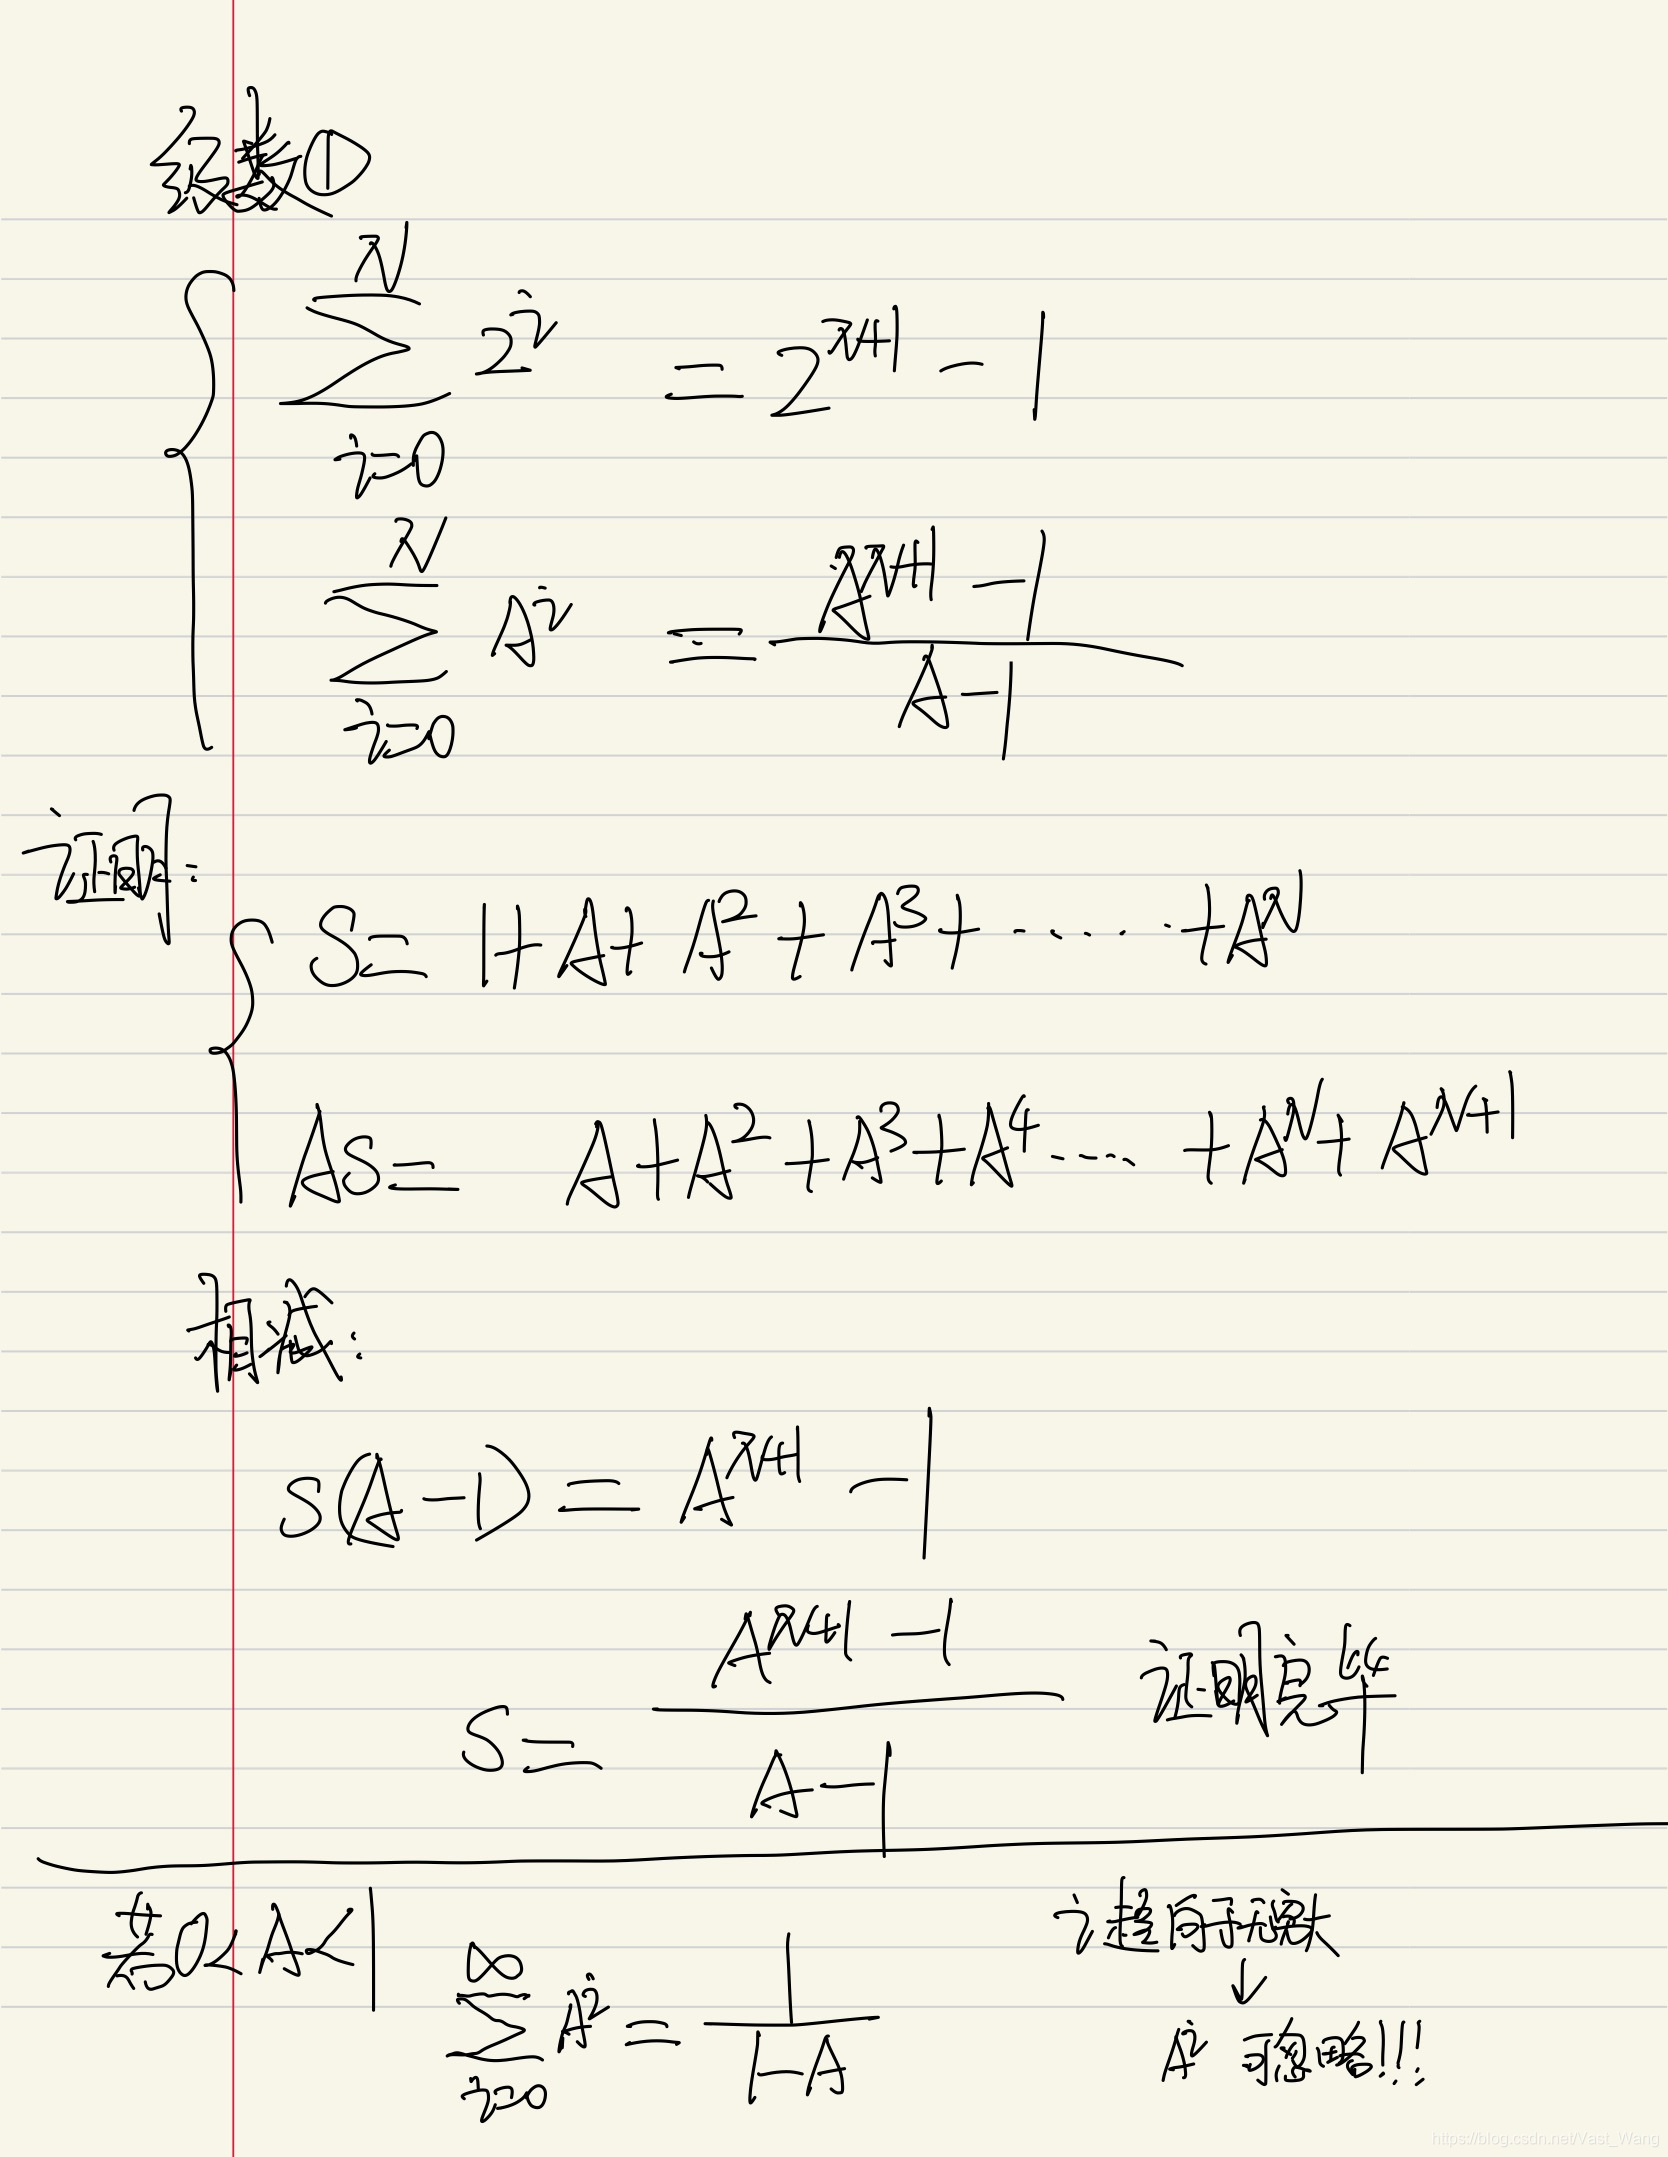 级数①
∑_{i=0}^{N} 2^i = 2^{N+1} - 1
∑_{i=0}^{N} A^i = \frac{A^{N+1} - 1}{A - 1}
证明:
S = 1 + A + A^2 + A^3 + ······ + A^N
AS = A + A^2 + A^3 + A^4 ····· + A^N + A^{N+1}
相减:
S(A - 1) = A^{N+1} - 1
S = \frac{A^{N+1} - 1}{A - 1} 证明完毕
若0 < A < 1
∑_{i=0}^{∞} A^i = \frac{1}{1 - A}
i趋向于无穷大
↓
A^i 可忽略!!!
https://blog.csdn.net/Vast_Wang